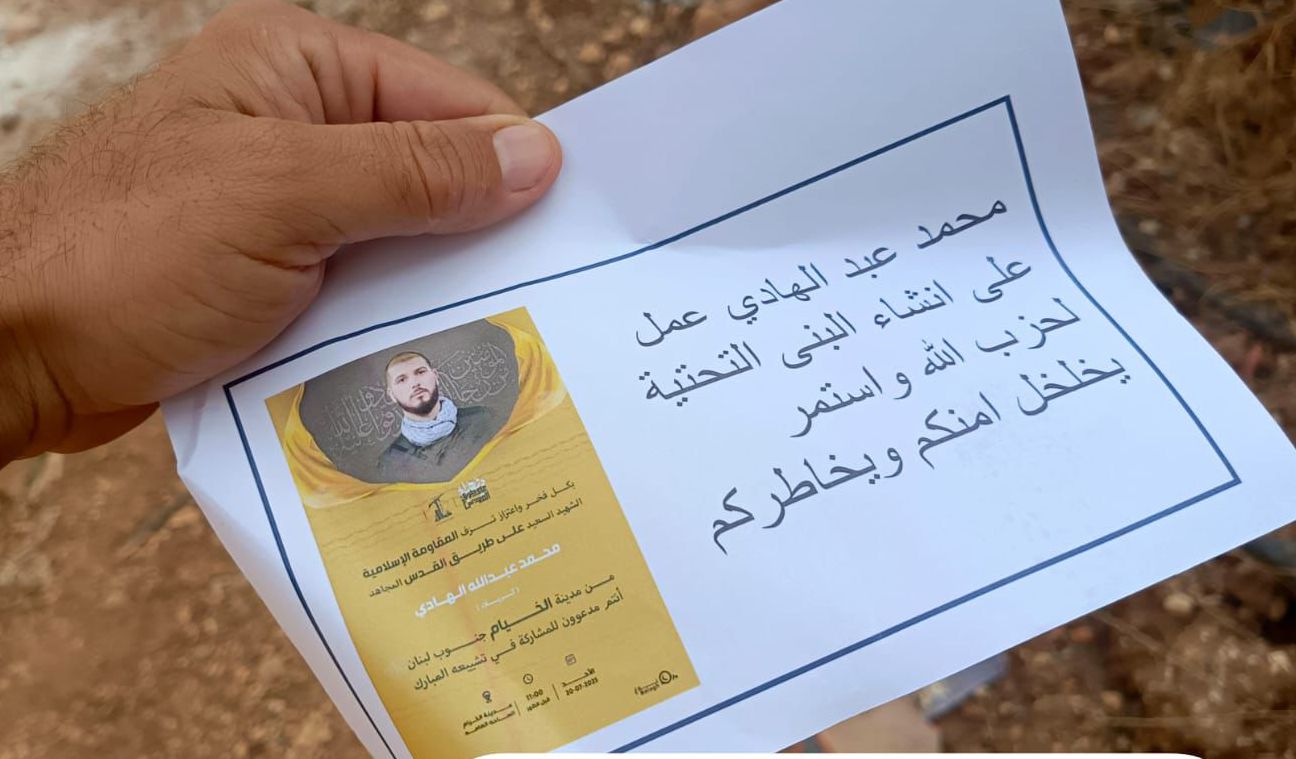 محمد عبد الهادي عمل
على انشاء البنى التحتية
لحزب الله و استمر
يخلخل امنكم ويخاطركم
بكل فخر واعتزاز تزف المقاومة الإسلامية
الشهيد السعيد على طريق القدس المجاهد
محمد عبدالله الهادي
من مدينة الخيام جنوب لبنان
أنتم مدعوون للمشاركة في تشييعه المبارك
الأحد
20-07-2025
11:00
قبل الظهر
مدينة الخيام
الساحة العامة